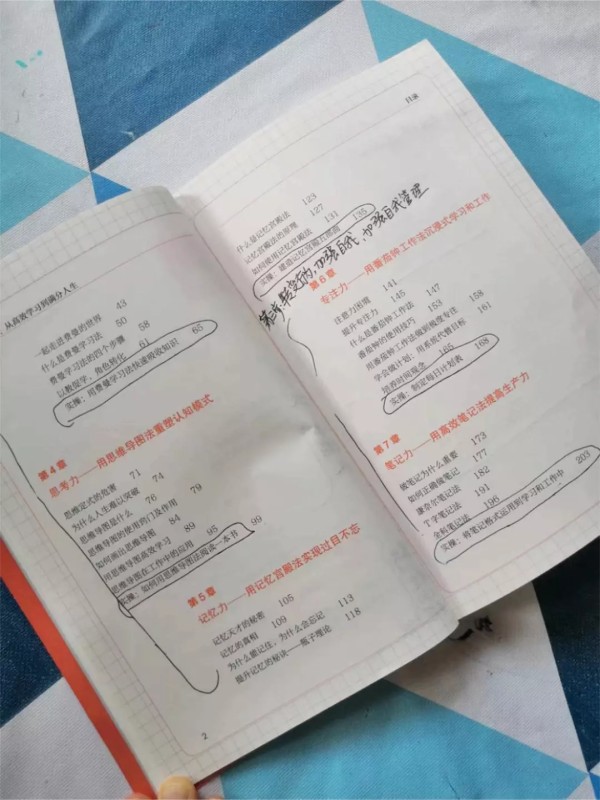 从高效学习到满分人生
一起走进费曼的世界 43
什么是费曼学习法 50
费曼学习法的四个步骤 58
以教促学，角色转化 61
实操：用费曼学习法快速吸收知识 65
第4章
思考力——用思维导图法重塑认知模式
思维定式的危害 71
为什么人生难以突破 74
思维导图是什么 76
思维导图的使用窍门及作用 79
如何画出思维导图 84
用思维导图高效学习 89
思维导图在工作中的应用 95
实操：如何用思维导图法阅读一本书 99
第5章
记忆力——用记忆宫殿法实现过目不忘
记忆天才的秘密 105
记忆的真相 109
为什么能记住，为什么会忘记 113
提升记忆的秘诀——瓶子理论 118
2
目录
什么是记忆宫殿法 123
记忆宫殿法的原理 127
如何使用记忆宫殿法 131
实操：建造记忆宫殿古部曲 135
加强自我管理
第6章
专注力——用番茄钟工作法沉浸式学习和工作
注意力困境 141
提升专注力 145
什么是番茄钟工作法 147
番茄钟的使用技巧 153
用番茄钟工作法做到极速专注 158
学会做计划：用系统代替目标 161
培养时间观念 165
实操：制定每日计划表 168
第7章
笔记力——用高效笔记法提高生产力
做笔记为什么重要 173
如何正确做笔记 177
康奈尔笔记法 182
T字笔记法 191
全科笔记法 196
实操：将笔记格式运用到学习和工作中 203